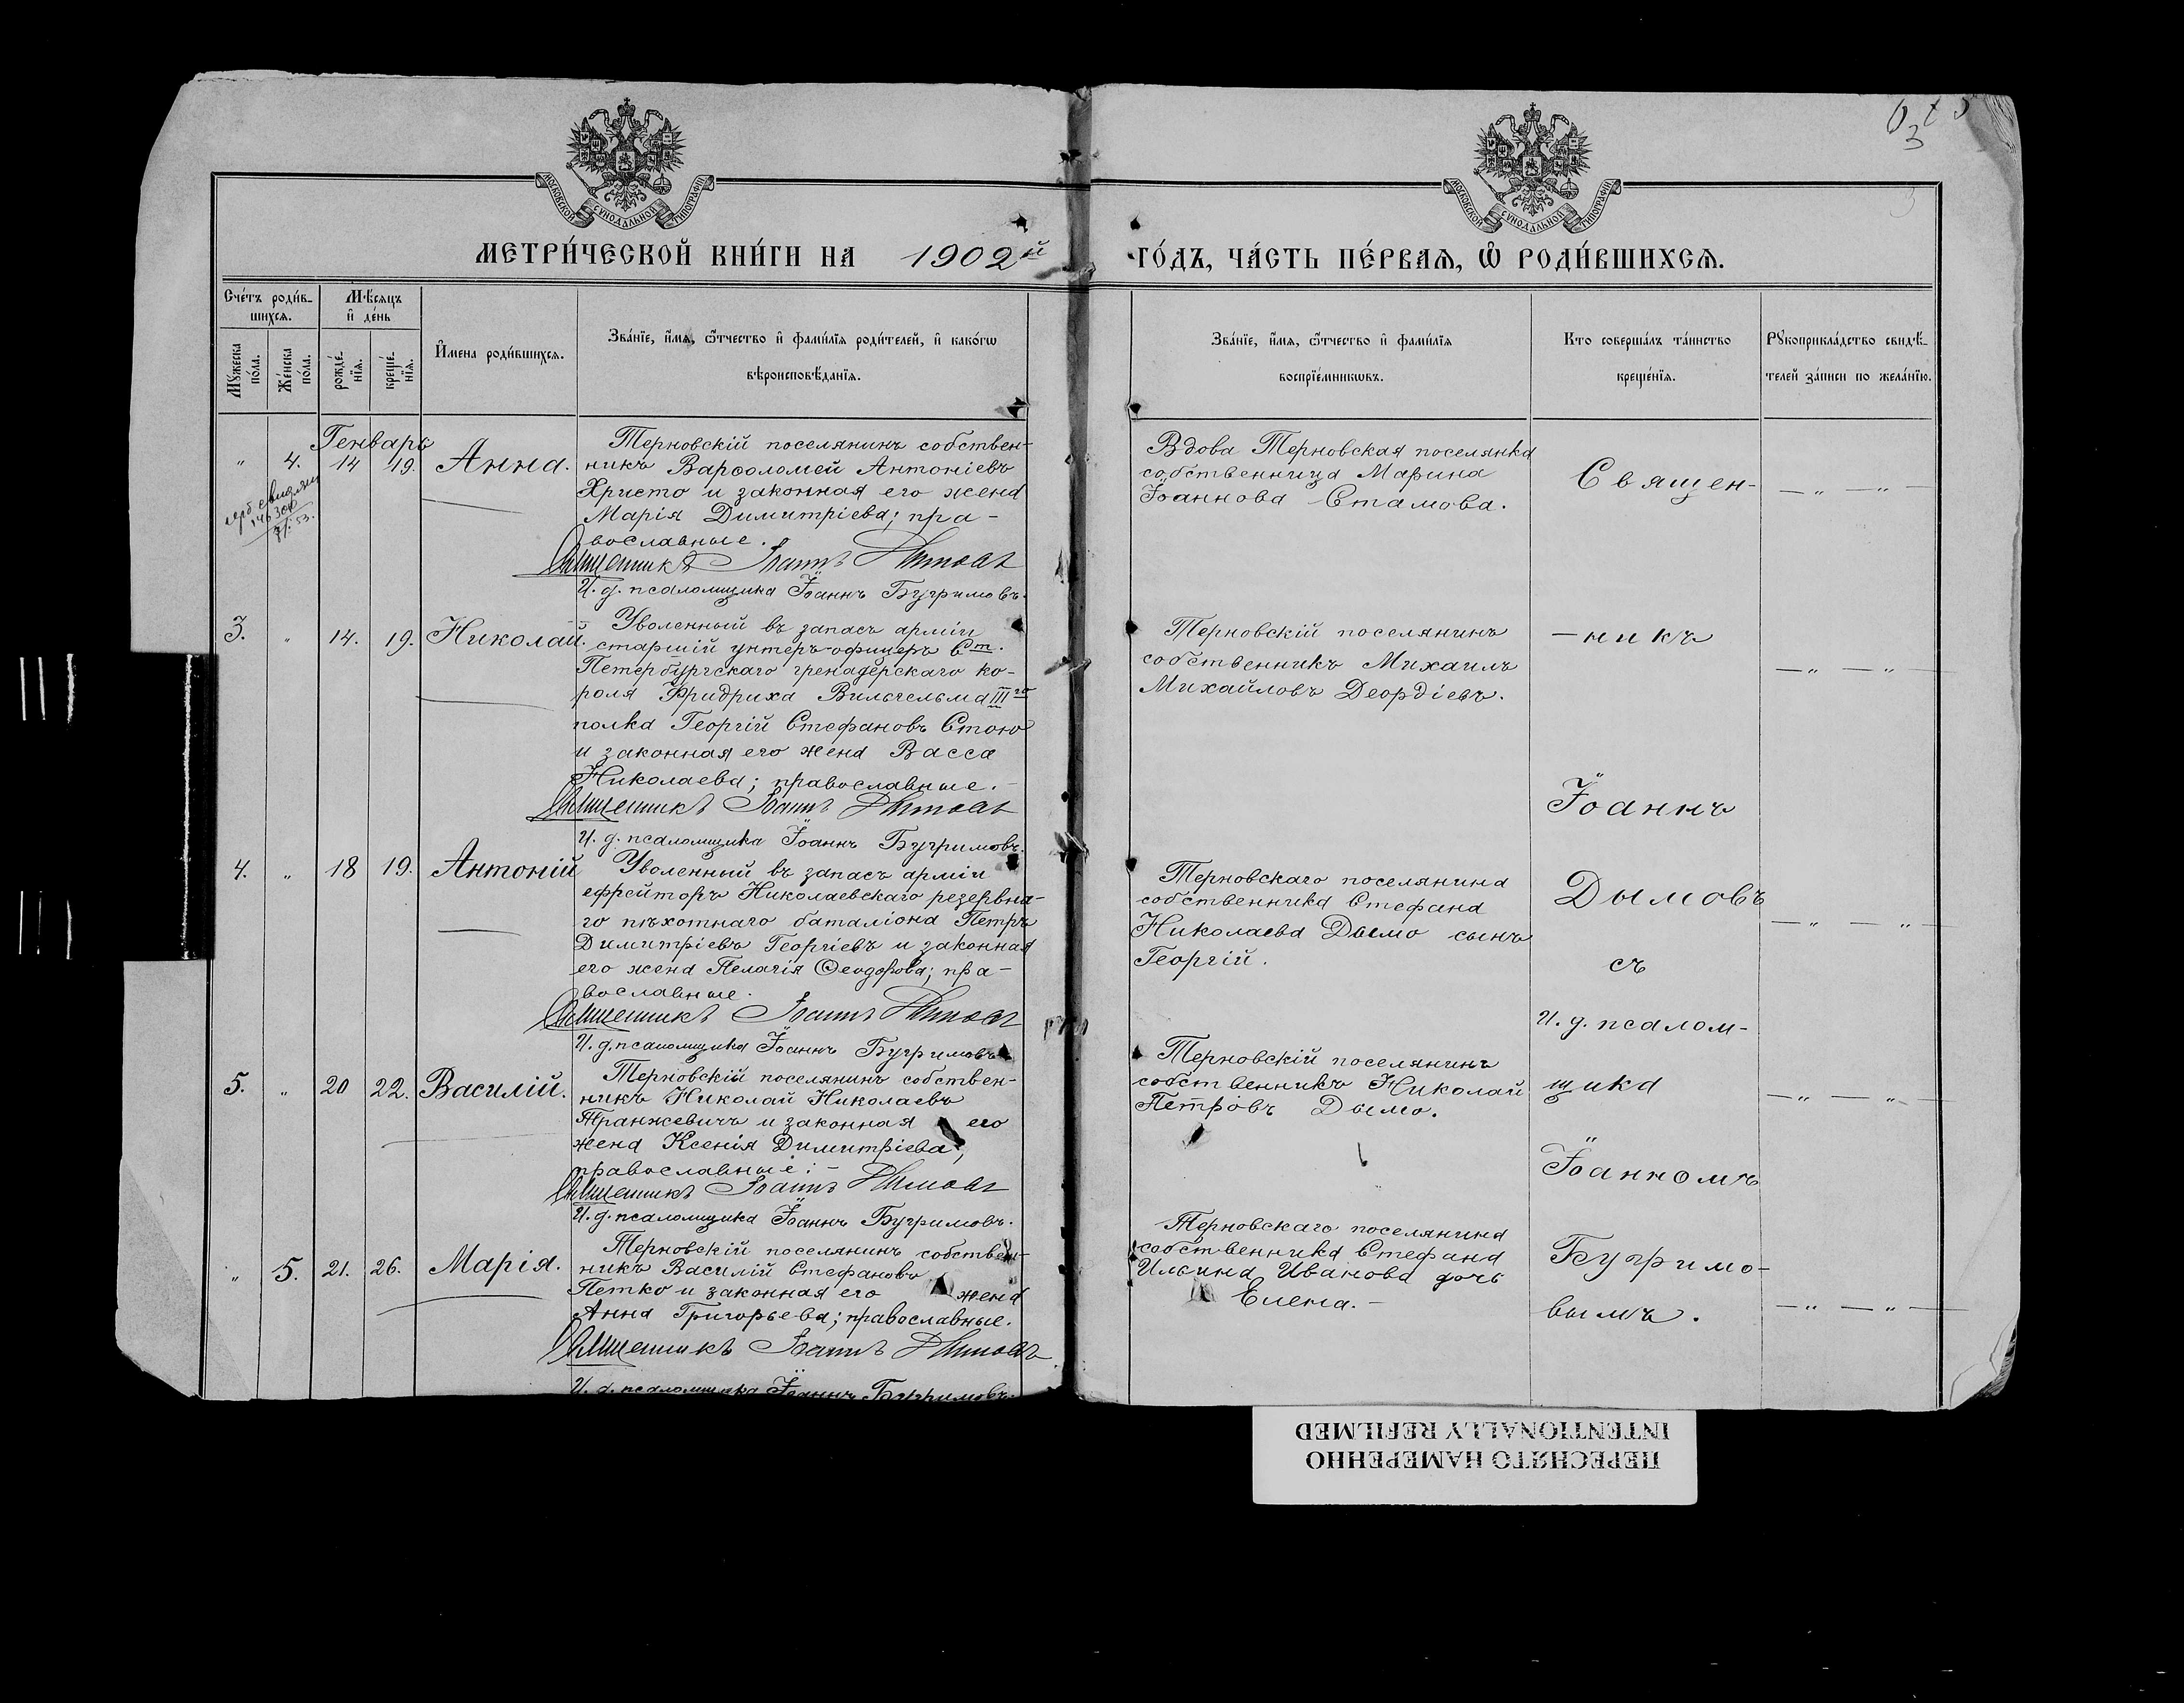 МОСКОВСКОЙ СѴНОДАЛЬНОЙ ТИПОГРАФІИ
МОСКОВСКОЙ СѴНОДАЛЬНОЙ ТИПОГРАФІИ
3
МЕТРИ́ЧЕСКОЙ КНИ́ГИ НА 1902й ГО́ДЪ, ЧА́СТЬ ПЕ́РВАѦ, Ѡ҆ РОДИ́ВШИХСѦ.
Сче́тъ роди́в-
шихсѧ.
Мѣ́сѧцъ
и҆ де́нь
Мꙋ́жеска
по́ла.
Же́нска
по́ла.
рожде́-
нїѧ.
креще́-
нїѧ.
И҆мена роди́вшихсѧ.
Зва́нїе, и҆́мѧ, ѻ҆́тчество и҆ фами́лїѧ роди́телей, и҆ како́гѡ
вѣроисповѣ́данїѧ.
Зва́нїе, и҆́мѧ, ѻ҆́тчество и҆ фами́лїѧ
воспрїе́мникѡвъ.
Кто соверша́лъ та́инство
креще́нїѧ.
Рꙋкоприкла́дство свидѣ́-
телей за́писи по жела́нїю.
Генварь
" 4. 14 19. Анна.
Терновскій поселянинъ собствен-
никъ Варѳоломей Антоніевъ
Христо и законная его жена
Марія Димитріева; пра-
вославные.
Священникъ Іоаннъ Дымовъ
И. д. псаломщика Іоаннъ Бугримовъ.
Вдова Терновская поселянка
собственница Марина
Іоаннова Стамова.
Священ-
3. " 14. 19. Николай.
Уволенный въ запасъ арміи
старшій унтеръ-офицеръ Ст.
Петербургскаго гренадерскаго ко-
роля Фридриха Вильгельма IIIго
полка Георгій Стефановъ Стою
и законная его жена Васса
Николаева; православные.-
Священникъ Іоаннъ Дымовъ
И. д. псаломщика Іоаннъ Бугримовъ.
Терновскій поселянинъ
собственникъ Михаилъ
Михайловъ Деордіевъ.
-никъ
Іоаннъ
4. " 18 19. Антоній
Уволенный въ запасъ арміи
ефрейторъ Николаевскаго резервна-
го пѣхотнаго баталіона Петръ
Димитріевъ Георгіевъ и законная
его жена Пелагія Ѳеодорова; пра-
вославные.
Священникъ Іоаннъ Дымовъ
И. д. псаломщика Іоаннъ Бугримовъ
Терновскаго поселянина
собственника Стефана
Николаева Дымо сынъ
Георгій.
Дымовъ
съ
И. д. псалом-
5. " 20 22. Василій.
Терновскій поселянинъ собствен-
никъ Николай Николаевъ
Транжевичъ и законная его
жена Ксенія Димитріева;
православные:-
Священникъ Іоаннъ Дымовъ
И. д. псаломщика Іоаннъ Бугримовъ.
Терновскій поселянинъ
собственникъ Николай
Петровъ Дымо.
щика
Іоанномъ
" 5. 21. 26. Марія.
Терновскій поселянинъ собствен-
никъ Василій Стефановъ
Петко и законная его жена
Анна Григорьева; православные.
Священникъ Іоаннъ Дымовъ
И. д. псаломщика Іоаннъ Бугримовъ.
Терновскаго поселянина
собственника Стефана
Ильина Иванова дочь
Елена.-
Бугримо-
вымъ.
ПЕРЕСНЯТО НАМЕРЕННО
INTENTIONALLY REFILMED